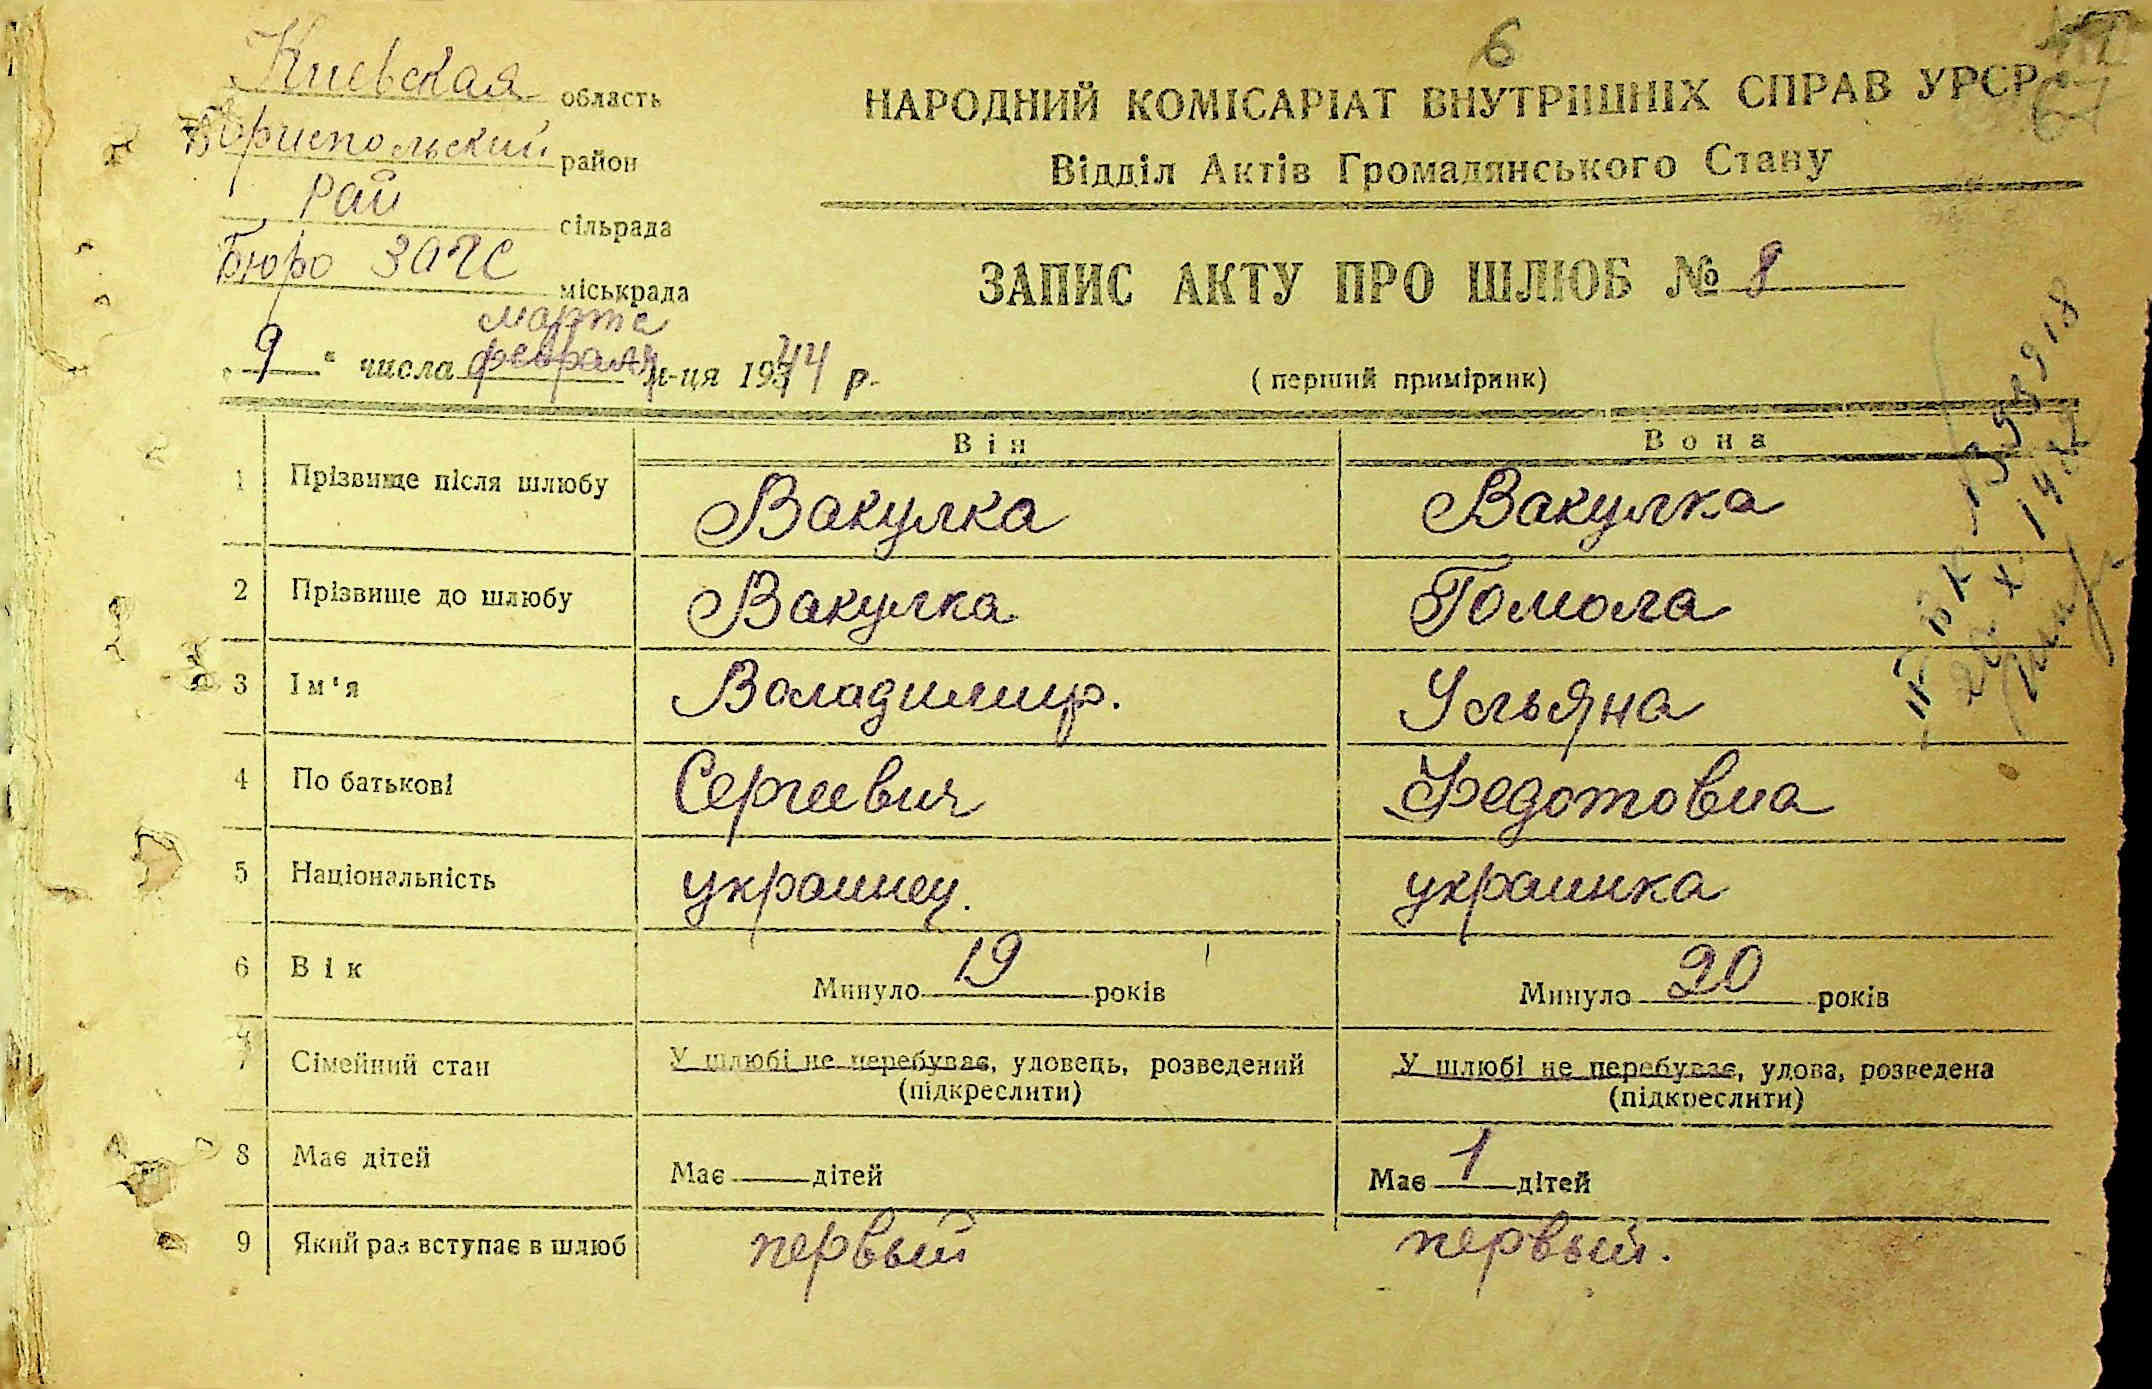 6
Киевская область
Бориспольский район
Рай сільрада
Бюро ЗАГС міськрада
НАРОДНИЙ КОМІСАРІАТ ВНУТРІШНІХ СПРАВ УРСР
Відділ Актів Громадянського Стану
ЗАПИС АКТУ ПРО ШЛЮБ № 8
марта
„ 9 " числа февраля м-ця 1944 р.
(перший примірник)
Він Вона
1 Прізвище після шлюбу Вакулка Вакулка
2 Прізвище до шлюбу Вакулка Гомола
3 Ім'я Воладимир. Ульяна
4 По батькові Сергеевич Федотовна
5 Національність украинец. украинка
6 Вік Минуло 19 років Минуло 20 років
7 Сімейний стан У шлюбі не перебуває, удовець, розведений У шлюбі не перебуває, удова, розведена
(підкреслити) (підкреслити)
8 Має дітей Має — дітей Має 1 дітей
9 Який раз вступає в шлюб первый первый.